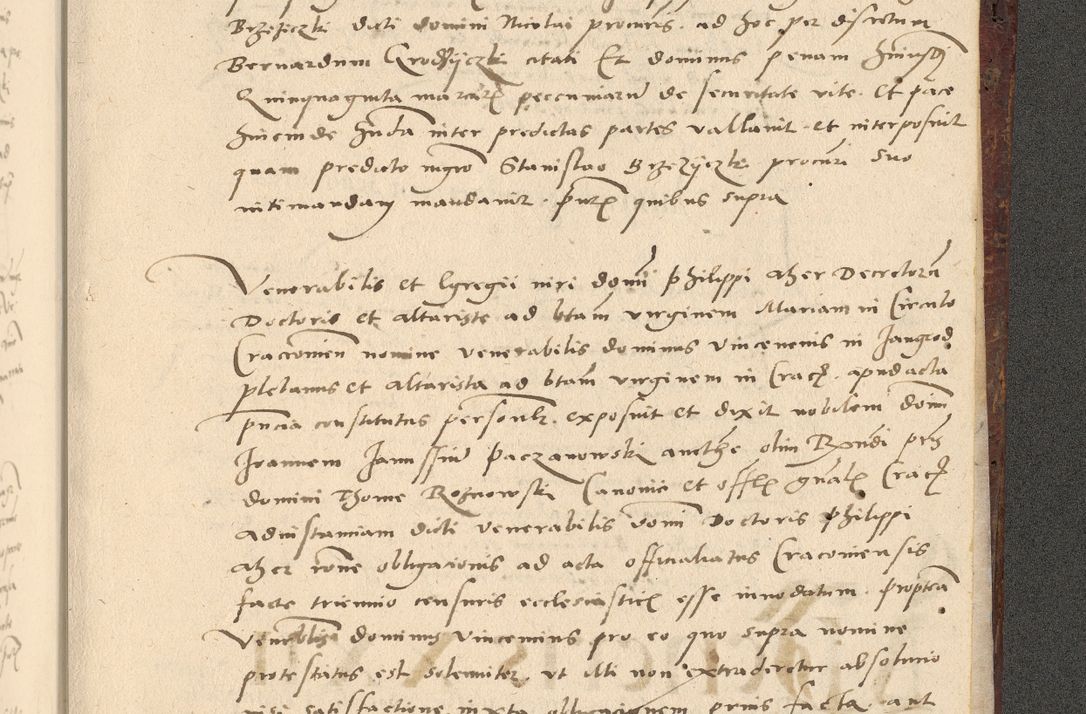 Brzeziczki dicti domini Nicolai procuris. ad hoc per discretum
Bernardum Grodzyczki citati Et dominus penam
Quinquaginta marcarum peccuniarum de securitate vite. Et pace
hincinde inter predictas partes vallavit. et interposuit
quam predicto Stanislao Brzezyczki procuri suo
intimandam mandavit. pntibus quibus supra
Venerabilis et Egregii viri domi philippi aher Decretorum
Doctoris et altariste ad btam virginem Mariam in Circulo
Cracovien nomine venerabilis dominus vincencius in Jangrod
plebanus et altarista ad btam virginem in Crac. apud acta
pncia constitutus personlr. exposuit et dixit nobilem domi
Joannem Janussium Paczanowski aucthe olim Rndi pris
domini Thome Roznowski Canonici et offlis gnalis Crac
ad instanciam dicti venerabilis domi Doctoris philippi
aher rone obligacionis ad acta officialiatus Cracoviensis
facte triennio censuris ecclesiasticis esse innodatum. propterea
Venerablis dominus vincencius pro eo quo supra nomine
protestatus est solenniter. ut illi non extraderetur absolucio
nisi satisfactione iuxta obligacionem prius facta. aut